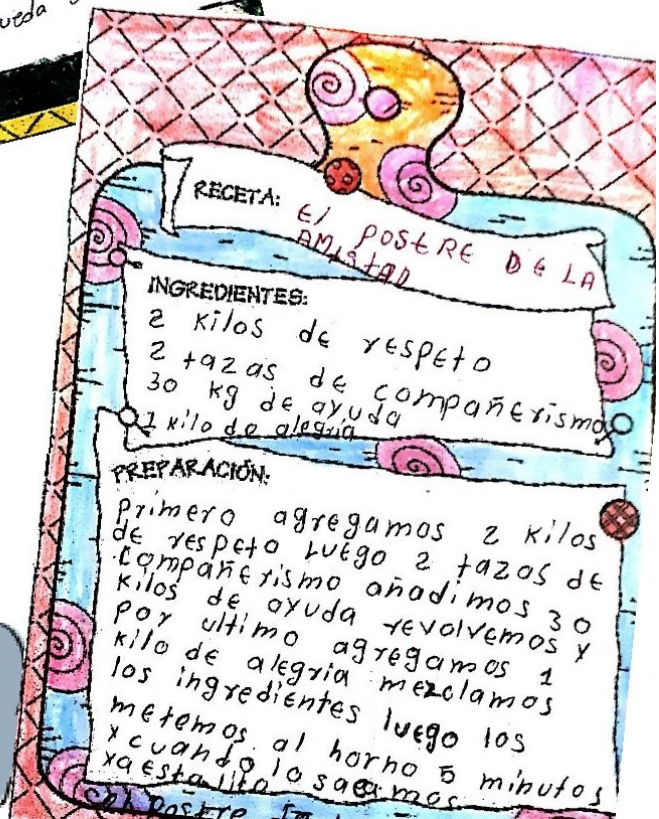 ueda
RECETA:
El POSTRE DE LA
AMISTAD
INGREDIENTES:
2 Kilos de respeto
2 tazas de compañerismo
30 kg de ayuda
1 kilo de alegria
PREPARACIÓN:
Primero agregamos 2 Kilos
de respeto Luego 2 tazas de
Compañerismo añadimos 30
Kilos de ayuda revolvemos y
por ultimo agregamos 1
kilo de alegria mezclamos
los ingredientes luego los
metemos al horno 5 minutos
y cuando lo sacamos
ya esta
el Postre